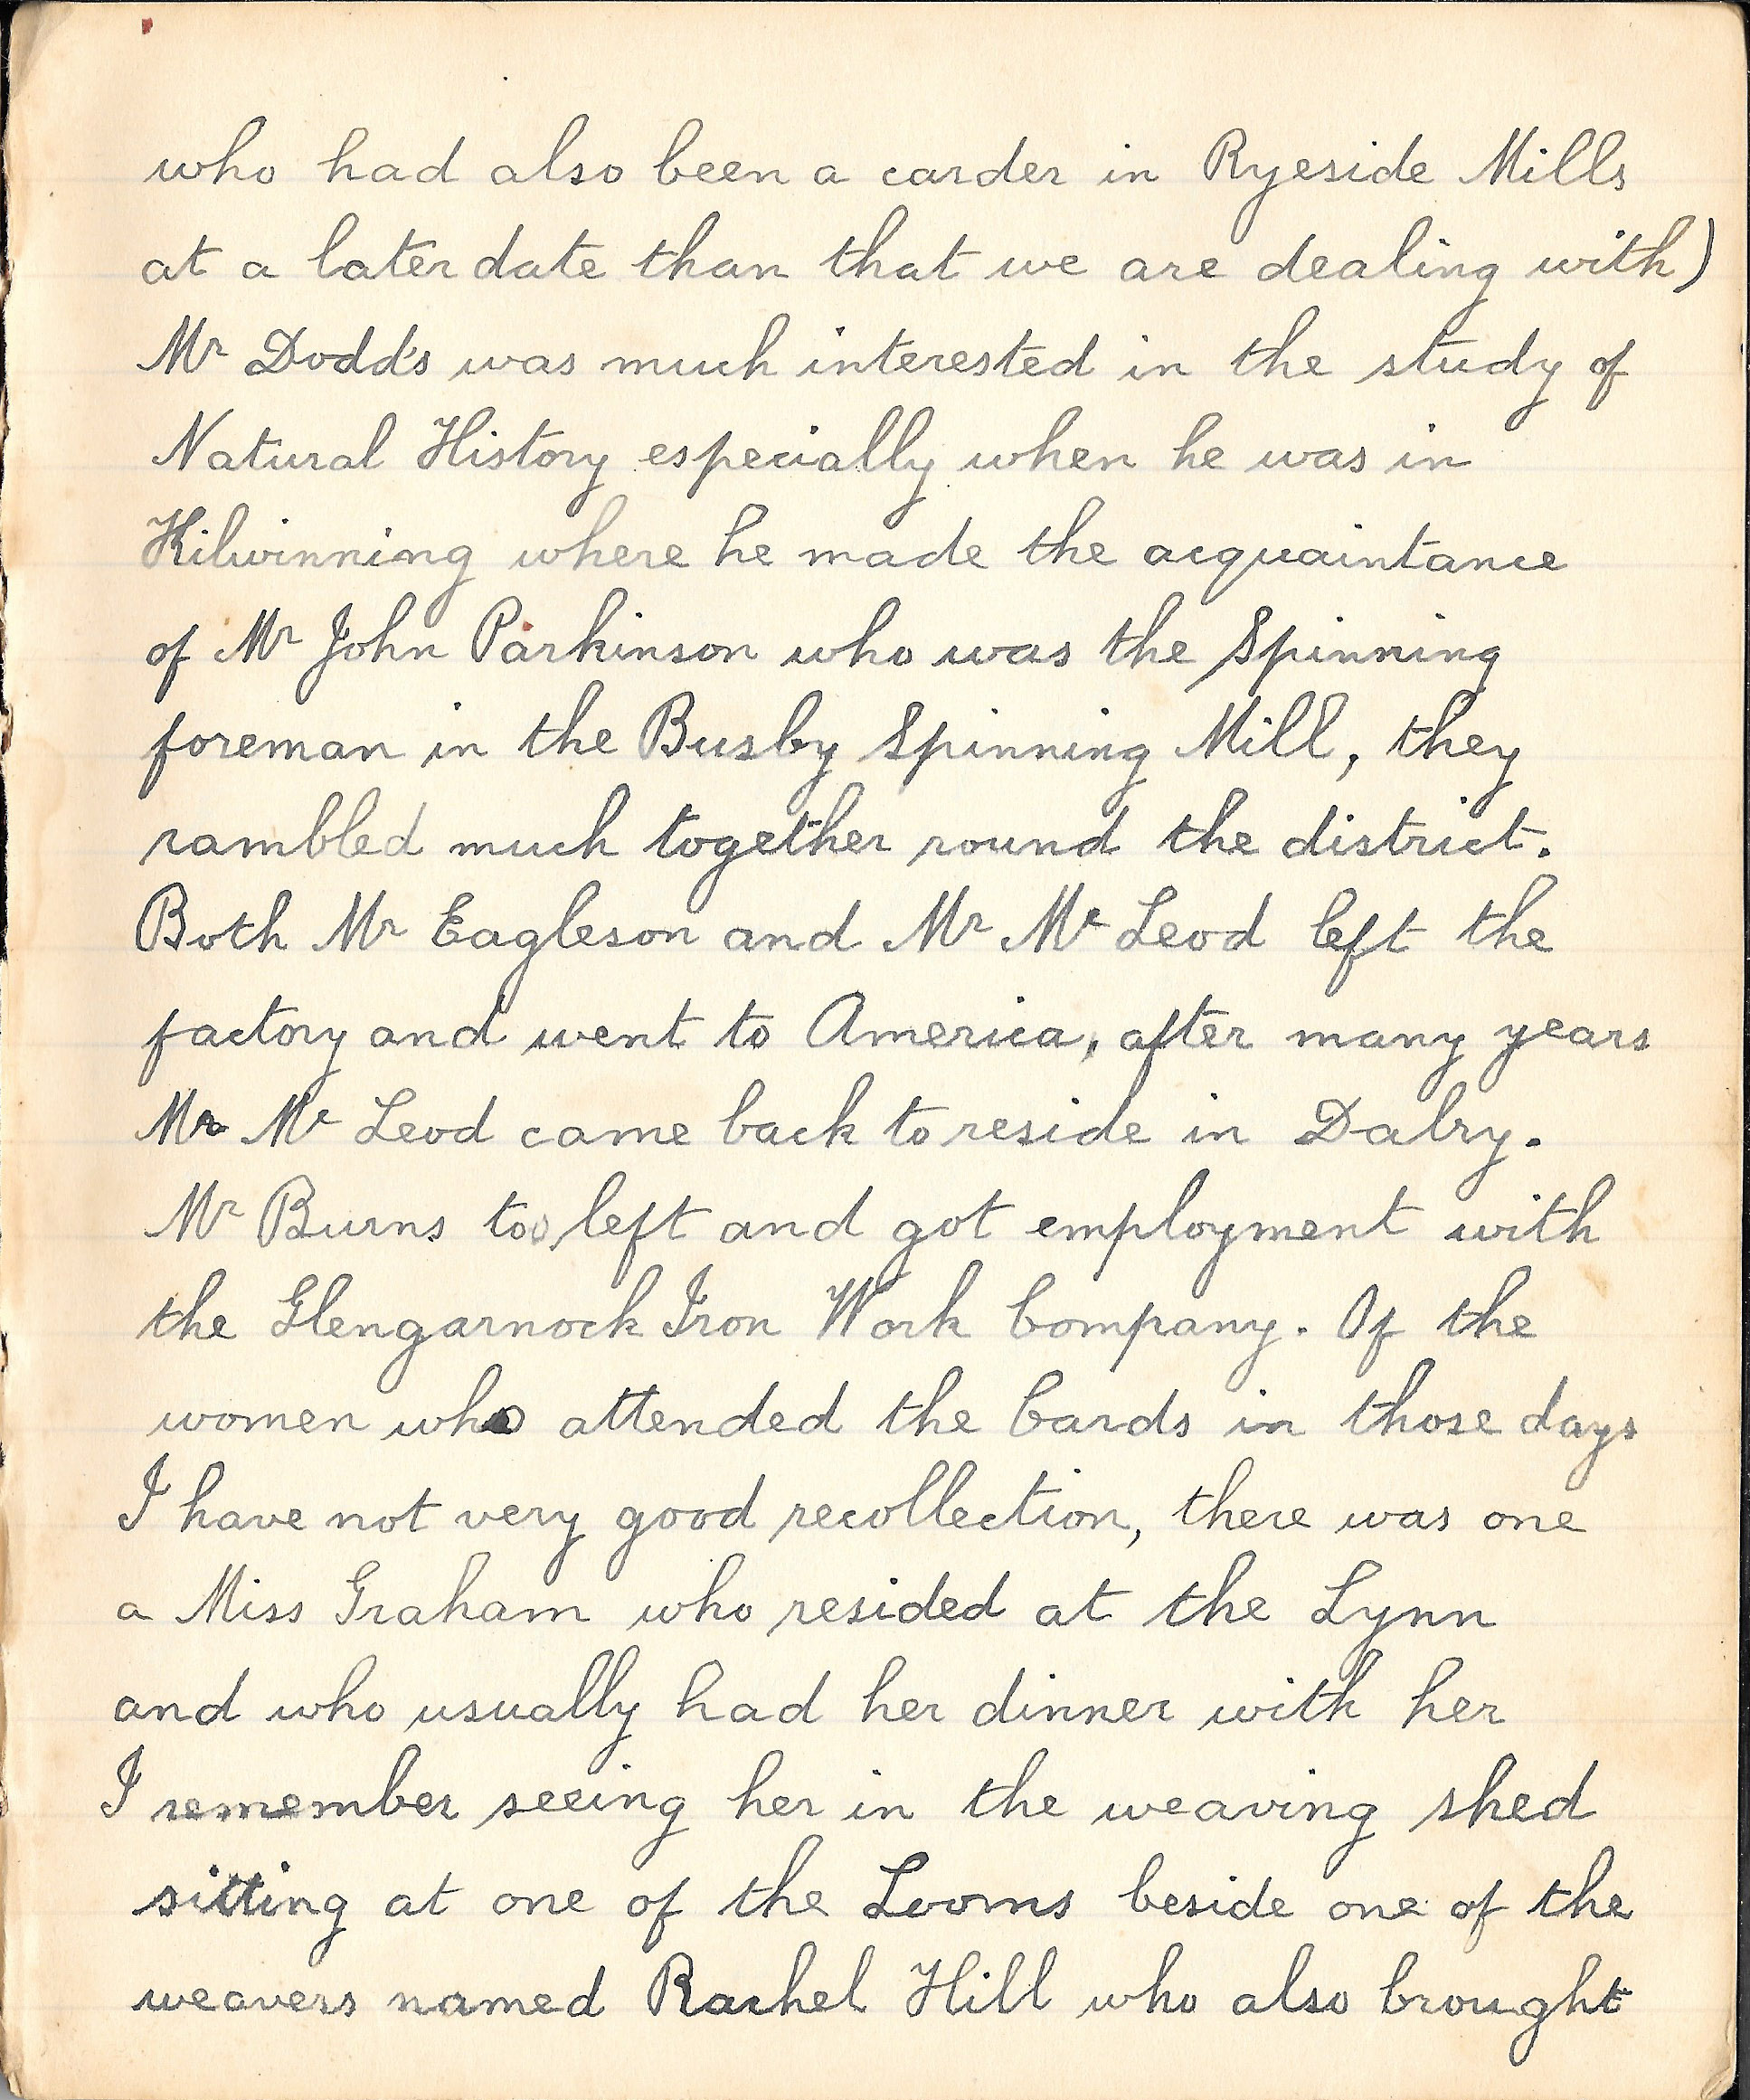 who had also been a carder in Ryeside Mills
at a later date than that we are dealing with)
Mr Dodd's was much interested in the study of
Natural History especially when he was in
Kilwinning where he made the acquaintance
of Mr John Parkinson who was the Spinning
foreman in the Busby Spinning Mill, they
rambled much together round the district.
Both Mr Eagleson and Mr Mc Leod left the
factory and went to America, after many years
Mr Mc Leod came back to reside in Dalry.
Mr Burns too left and got employment with
the Glengarnock Iron Work Company. Of the
women who attended the Cards in those days
I have not very good recollection, there was one
a Miss Graham who resided at the Lynn
and who usually had her dinner with her
I remember seeing her in the weaving shed
sitting at one of the Looms beside one of the
weavers named Rachel Hill who also brought